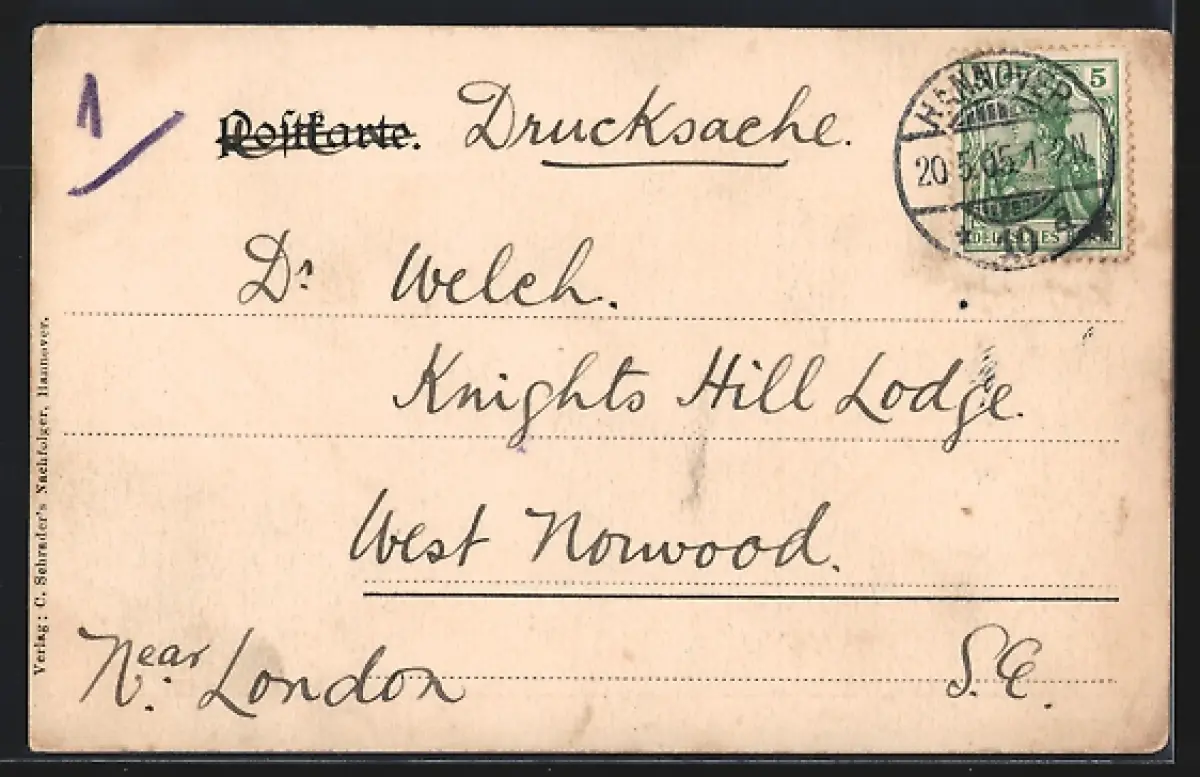 1
Postkarte. Drucksache.
5
HANNOVER
20.5.05.1-2N.
* 10 a *
DEUTSCHES REICH
Dr Welch.
Knights Hill Lodge.
West Norwood.
Near London S.E.
Verlag: C. Schrader's Nachfolger, Hannover.